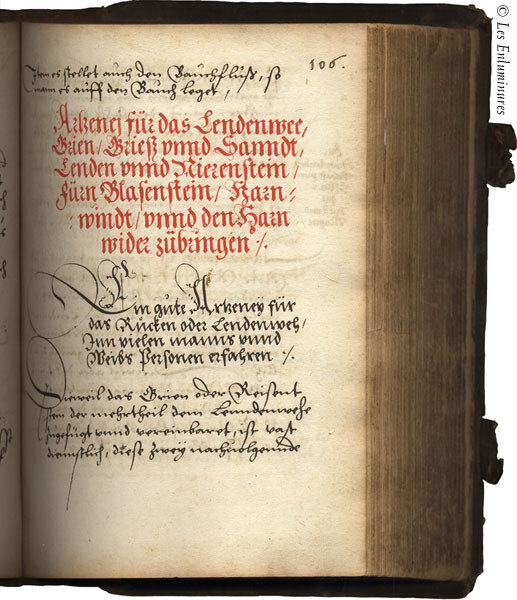 106.
Item es stellet auch den Bauchfluß, so
mann es auff den Bauch leget,
Artzenej für das Lendenwee,
Grien, Grieß vnnd Sanndt,
Lenden vnnd Nierenstein,
fürn Blasenstein, Harn-
windt, vnnd den Harn
wider zübringen /.
Ein gute Artzeney für
das Rucken oder Lendenweh,
Inn vielen manns vnnd
Weibs Personen erfahren :/.
Dieweil das Grien oder Reisent
stein der mehrtheil dem Lenndenwehe
zugefügt vnnd vereinbaret, ist vast
dienstlich, diese zwey nachuolgennde
© Les Enluminures